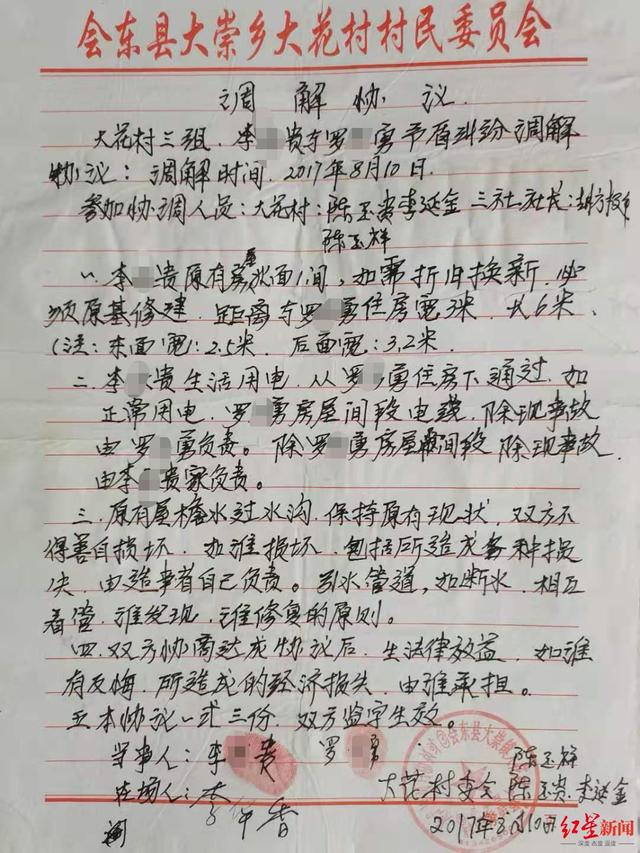 会东县大崇乡大花村村民委员会
调解协议.
大花村三组.李 贵与罗 勇矛盾纠纷调解
协议：调解时间.2017年8月10日.
参加协调人员：大花村：陈玉贵李延金 三社社长：
陈玉祥
一.李 贵原有房屋水面1间,如需折旧换新.必
须原基修建.距离与罗 勇住房宽3米.长6米.
(注：东面宽1:2.5米. 后面宽：3.2米.
二.李 贵生活用电.从罗 勇住房下通过.如
正常用电.罗 勇房屋间段电线.除现事故
由罗 勇负责。除罗 勇房屋间段 除现事故.
由李 贵家负责。
三.原有屋檐水过水沟.保持原有现状.双方不
得善自损坏.如谁损坏.包括所造成各种损
失.由造事者自己负责。引水管道,如断水.相互
看管.谁发现.谁修复的原则。
四.双方协商达成协议后.生法律效益.如谁
有反悔.所造成的经济损失.由谁承担。
五.本协议一式三份.双方签字生效。
当事人：李 贵 罗 勇 陈玉祥
大花村委会 陈玉贵 李延金
在场人：李 香
2017年8月10日
红星新闻
深度 态度 温度